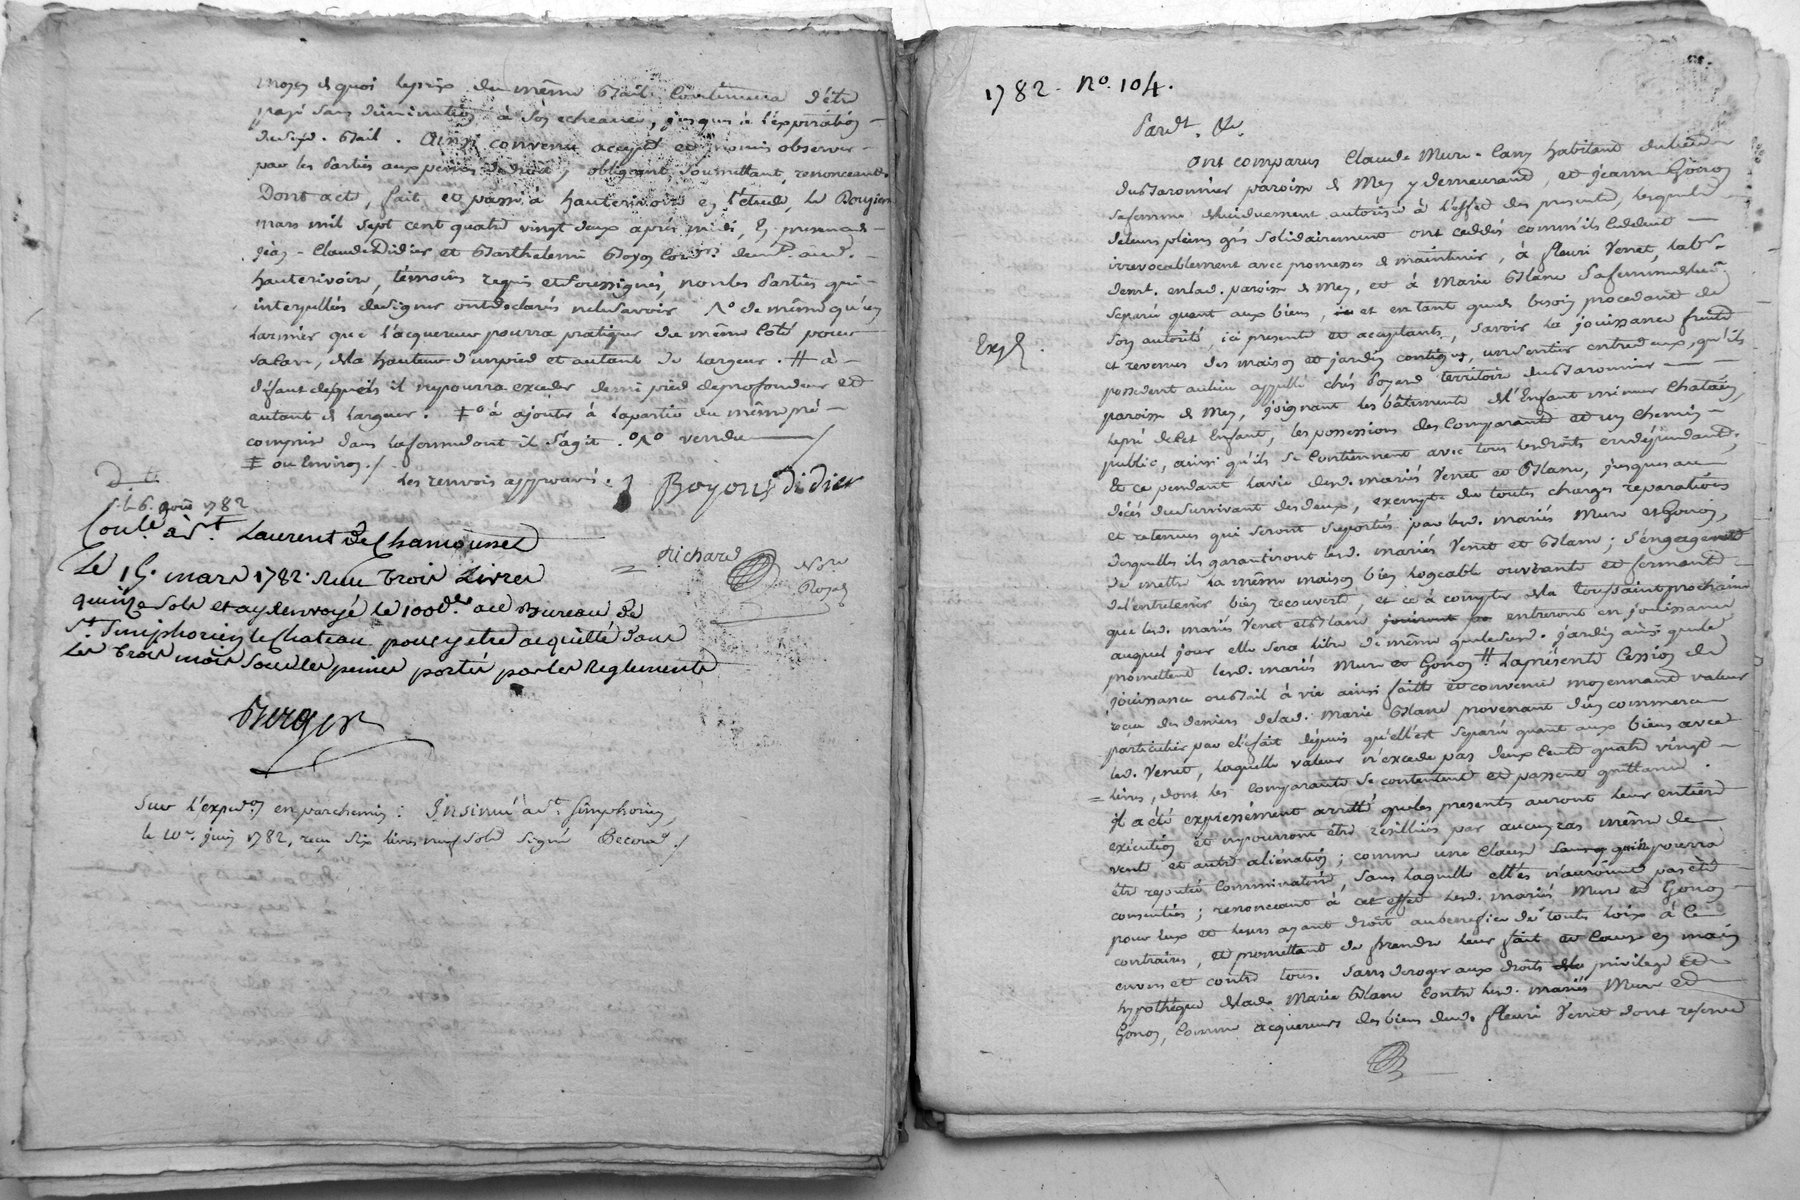 moyen de quoi le prix du même Bail continuera d'être
payé sans diminution à son echeance, jusques à l'expiration
dudit. Bail. Ainsi convenu accepté et promis observer
par les Parties aux peines de droit, obligeant, soumettant, renonceant.
Dont acte, fait et passé à hauterivoire en l'etude, le
mars mil sept cent quatre vingt deux après midi, En presence de
Jean-Claude Didier et Barthelemi Boyon
hauterivoire, témoins requis et soussignés, non les Parties qui
interpellés de signer ont declarés ne le savoir de même qu'en
larmier que l'acquereur pourra pratiquer du même coté pour
de la hauteur d'un pied et autant de largeur. # à
défaut desquels il ne pourra exceder demi pied de profondeur et
autant de largeur. à ajouter à la partie du même pré
comprise dans la ferme dont il s'agit. vendu
ou environ./
les renvois approuvés.
Boyon Didier
1782
Conlé. à St. Laurent de Chamousset
Le 15. mars 1782. Reçu trois Livres
quinze Sols et ay renvoyé le 100e. au Bureau de
St. Simphorien le Chateau pour y etre acquitté dans
les trois mois sous les peines portés par les Reglements
Richard
Nore
Royal
Berger
Sur l'expon. en parchemin: Insinué à St. Simphorien,
le 10e. juin 1782, reçu six livres neuf sols signé Decora./
1782. No. 104.
Pardt. &c.
Ont comparus Claude Mure habitant du lieu
du Baronnier paroisse de Mey y demeurant, et jeanne Gonon
sa femme de lui duement autorisée à l'effet des presentes, lesquels
de leurs pleins grés solidairement ont ceddés comm'ils ceddent
irrevocablement avec promesses de maintenir, à fleuri Verret, labr.
demt. en lad. paroisse de Mey, et à Marie Blanc sa femme de lui
separée quant aux biens, et en tant que de besoin procedant de
son autorité, ici presents et acceptants, savoir la jouissance fruits
Expé.
et revenus des maison et jardin contigus, un sentier entre deux, qu'ils
possedent au lieu appellé chés Poyard territoire du Baronnier
paroisse de Mey, joignant les bâtiments de l'Enfant mineur Chatain,
le pré dudit Enfant, les possessions des Comparants et un chemin
public, ainsi qu'ils se contiennent avec tous les droits en dépendants,
Et ce pendant la vie desd. mariés Verret et Blanc, jusques au
décès du survivant des deux, exempte de toutes charges reparations
et retenues qui seront suportés par lesd. mariés Mure et Gonon,
desquelles ils garantiront lesd. mariés Verret et Blanc; s'engageants
de mettre la même maison bien logeable ouvrante et fermante
de l'entretenir bien recouverte, et ce à compter de la Toussaint prochaine
que lesd. mariés Verret et Blanc entreront en jouissance
auquel jour elle sera libre de même que led. jardin ainsi que le
promettent lesd. mariés Mure et Gonon # la présente Cession de
jouissance ou Bail à vie ainsi faitte et convenue moyennant valeur
reçue des deniers de lad. Marie Blanc provenant d'un commerce
particulier par elle fait depuis qu'ell'est separée quant aux biens avec
led. Verret, laquelle valeur n'excede pas deux Cents quatre vingt
livres, dont les Comparants se contentent et passent quittance.
il a été expressement arretté que les presentes auront leur entiere
exécution et ne pourront être resiliées par aucun cas même de
vente et autre alienation; comme une Clause pourra
être reputée comminatoire, sans laquelle elles n'auroient pas été
consenties; renonceant à cet effet lesd. mariés Mure et Gonon
pour eux et leurs ayant droit au benefice de toutes loix à ce
contraires, et promettant de prendre leur fait et cause en main
envers et contre tous. Sans deroger aux droits privilege et
hypothéque de lade. Marie Blanc contre lesd. mariés Mure et
Gonon, comme acquereurs des biens dud. fleuri Verret dont reserve